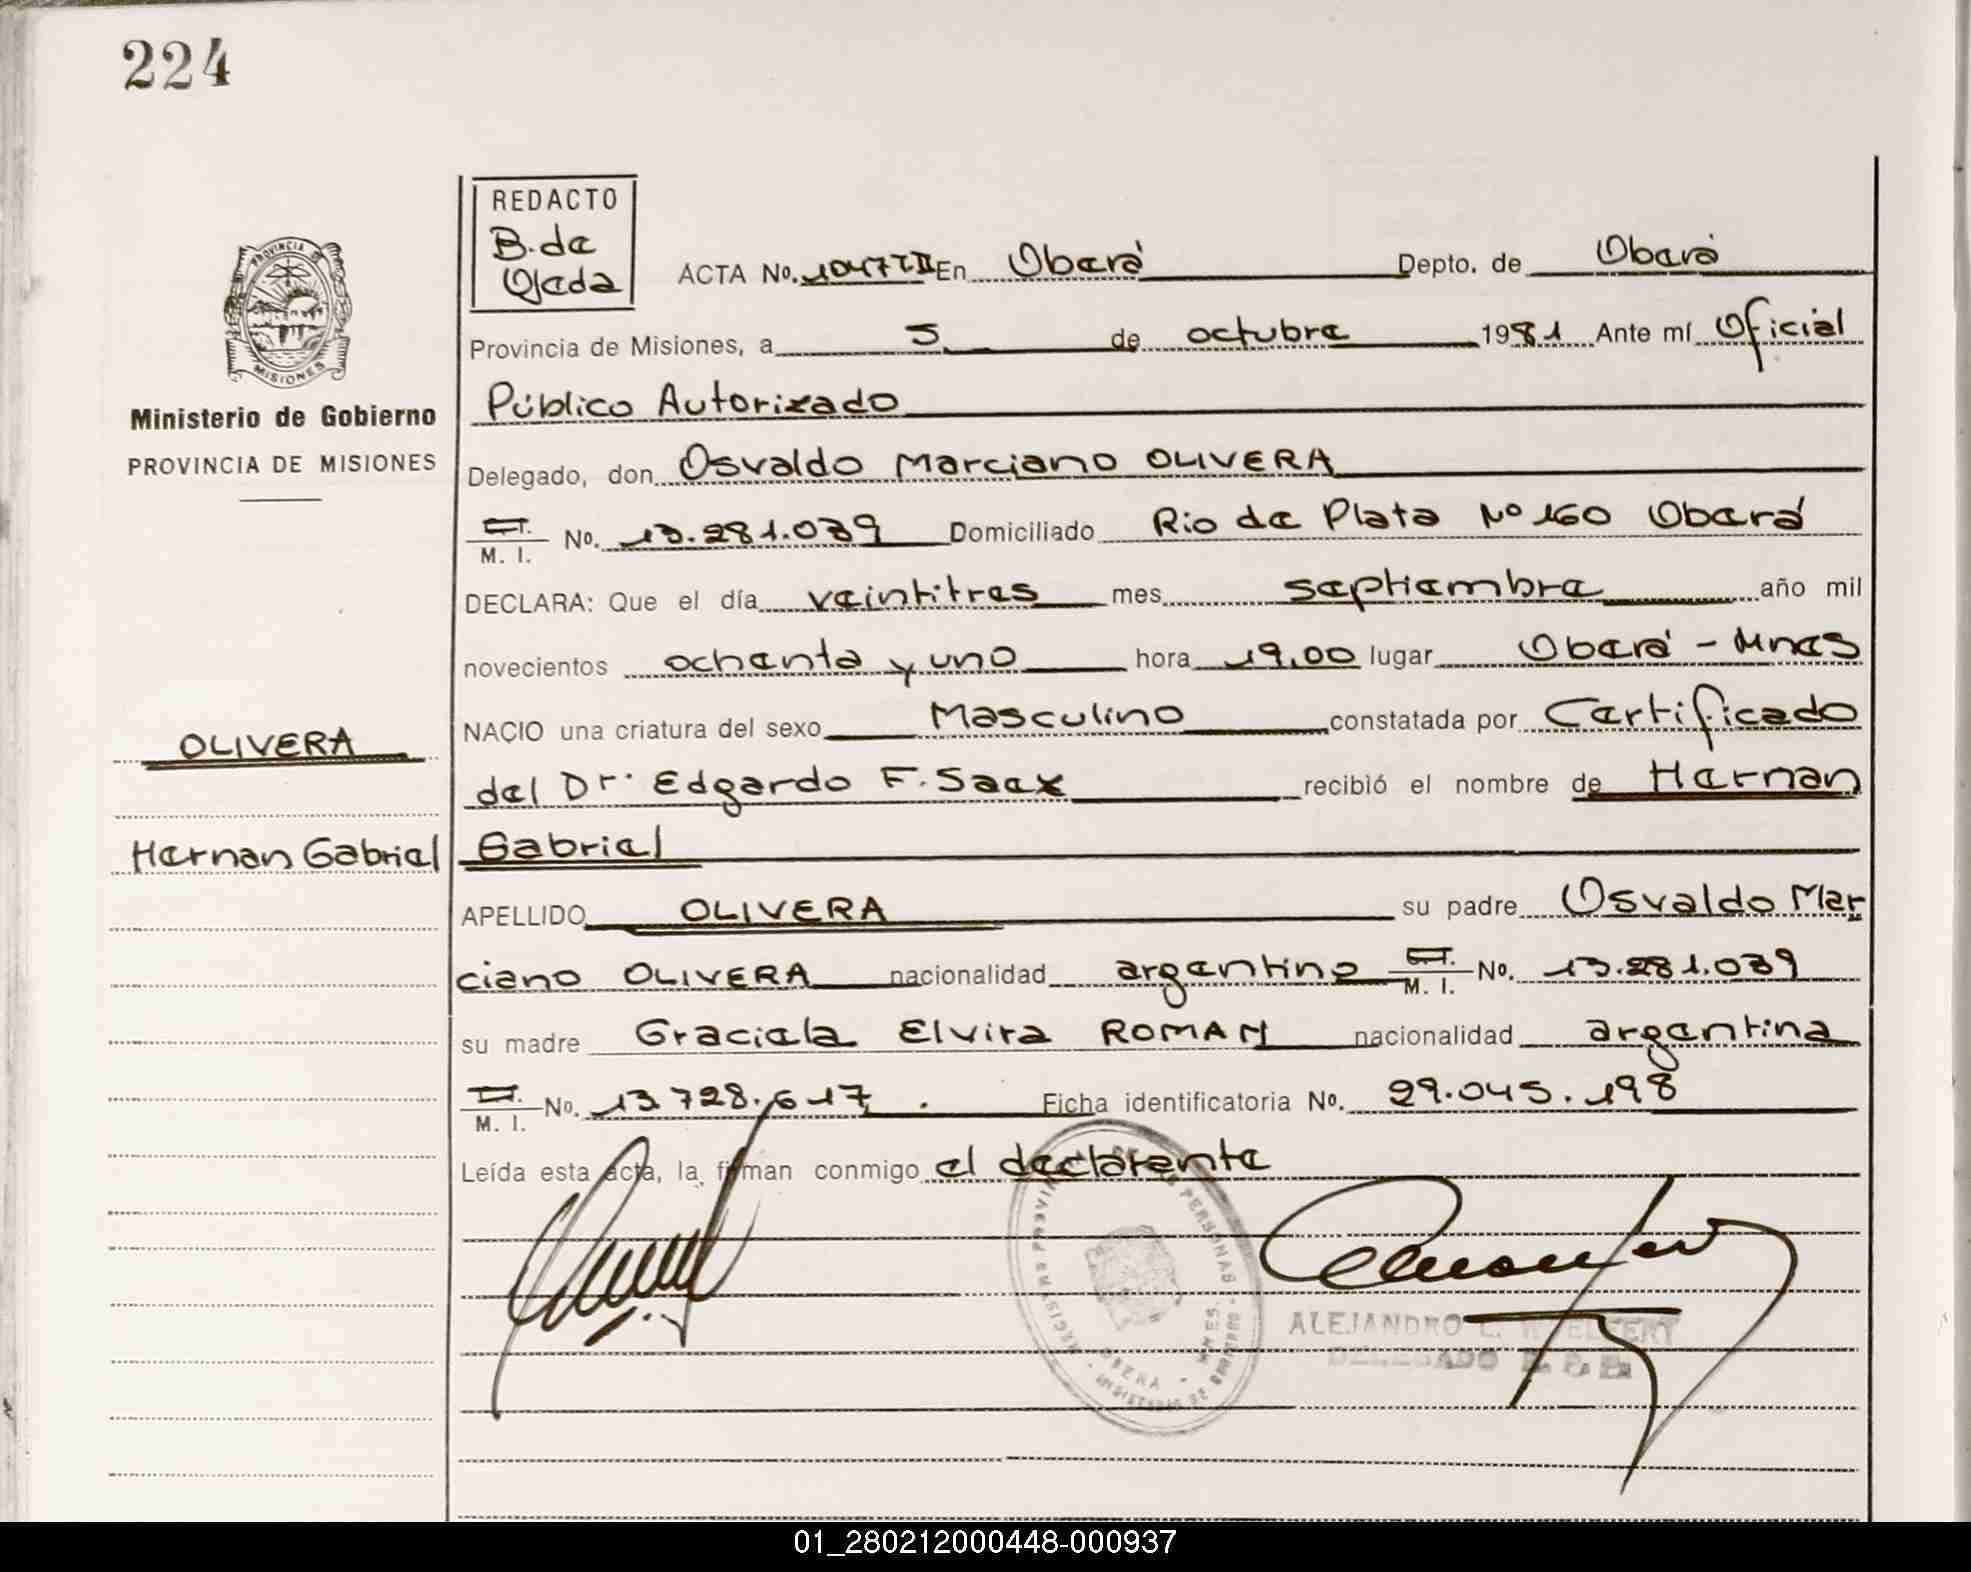 224
REDACTO
B. de
Ojeda
ACTA No. 1047 T II En Oberá Depto. de Oberá
Provincia de Misiones, a 5 de octubre 1981 Ante mí Oficial
Público Autorizado
Delegado, don Osvaldo Marciano OLIVERA
C.I.
M. I. No. 13.281.039 Domiciliado Rio de Plata Nº 160 Oberá
DECLARA: Que el día veintitres mes septiembre año mil
novecientos ochenta y uno hora 19,00 lugar Oberá - Mnes
NACIO una criatura del sexo Masculino constatada por Certificado
del Dr. Edgardo F. Saex recibió el nombre de Hernan
Gabriel
APELLIDO OLIVERA su padre Osvaldo Mar
ciano OLIVERA nacionalidad argentino C.I.
M. I. No. 13.281.039
su madre Graciela Elvira ROMAN nacionalidad argentina
C.I.
M. I. No. 13.728.617. Ficha identificatoria No. 29.045.198
Leída esta acta, la firman conmigo el declarente
PROVINCIA
MISIONES
Ministerio de Gobierno
PROVINCIA DE MISIONES
OLIVERA
Hernan Gabriel
ALEJANDRO
DELEGADO
OBERA
01_280212000448-000937